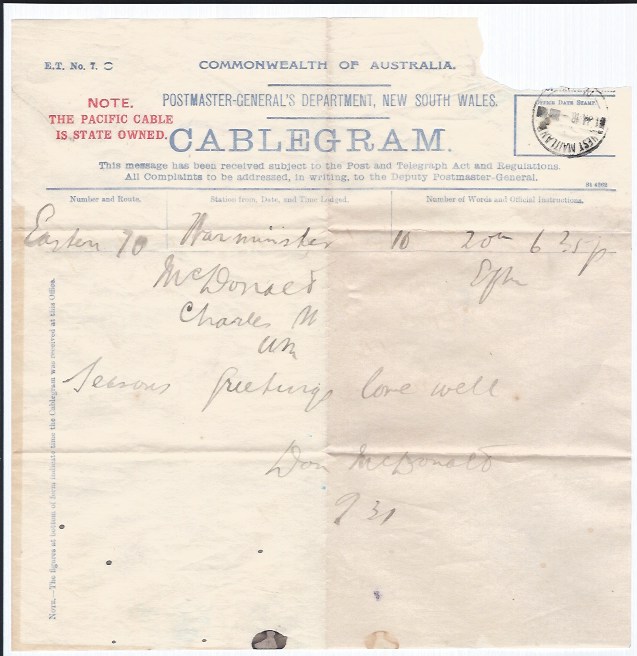 E.T. No. 7.
COMMONWEALTH OF AUSTRALIA.
NOTE.
THE PACIFIC CABLE
IS STATE OWNED.
POSTMASTER-GENERAL'S DEPARTMENT, NEW SOUTH WALES.
CABLEGRAM.
OFFICE DATE STAMP.
WEST MAITLAND
This message has been received subject to the Post and Telegraph Act and Regulations.
All Complaints to be addressed, in writing, to the Deputy Postmaster-General.
Number and Route.
Station from, Date, and Time Lodged.
Number of Words and Official Instructions.
Eastern 70 Warminster 10 20th 6 35p
McDonald
Charles
Seasons greetings love well
Don McDonald
9 31
Note.—The figures at bottom of form indicate time the Cablegram was received at this Office.